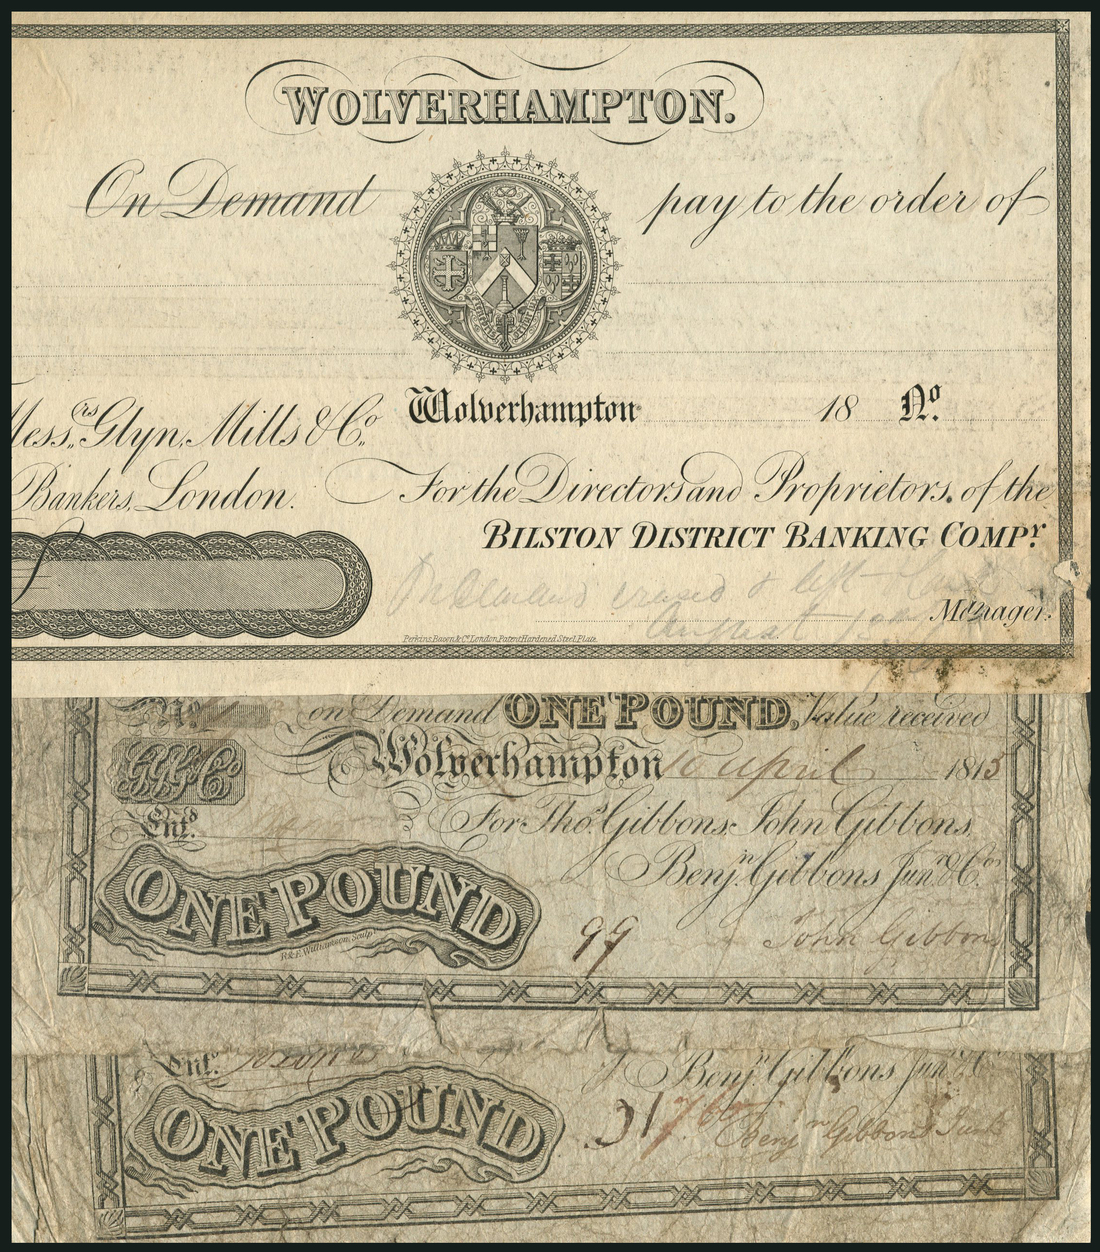 WOLVERHAMPTON.
On Demand pay to the order of
Mess.rs Glyn, Mills & Co. Wolverhampton 18 No.
Bankers, London. For the Directors and Proprietors, of the
BILSTON DISTRICT BANKING COMPY.
On Demand erased & left
August Manager.
Perkins, Bacon & Co. London, Patent Hardened Steel Plate.
No on Demand ONE POUND, Value received
Wolverhampton 10 April 1815
GGG&Co
Entd. For Thos. Gibbons, John Gibbons,
Benjn. Gibbons Junr. & Cos.
ONE POUND
R & E. Williamson, Sculpt.
99 John Gibbons
Entd. Benjn. Gibbons Junr. & Co.
ONE POUND
Benjn Gibbons Junr